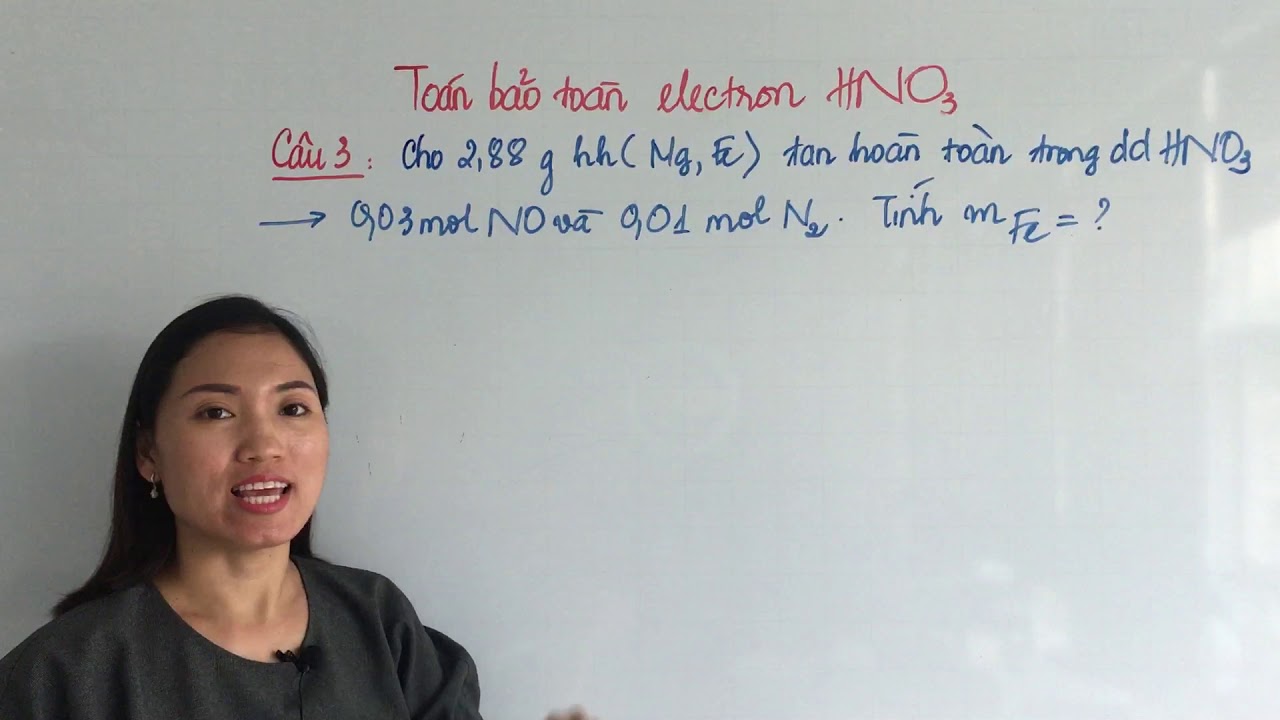 Toán bảo toàn electron HNO₃
Câu 3: Cho 2,88 g hh (Mg, Fe) tan hoàn toàn trong dd HNO₃
→ 0,03 mol NO và 0,01 mol N₂. Tính m Fe = ?